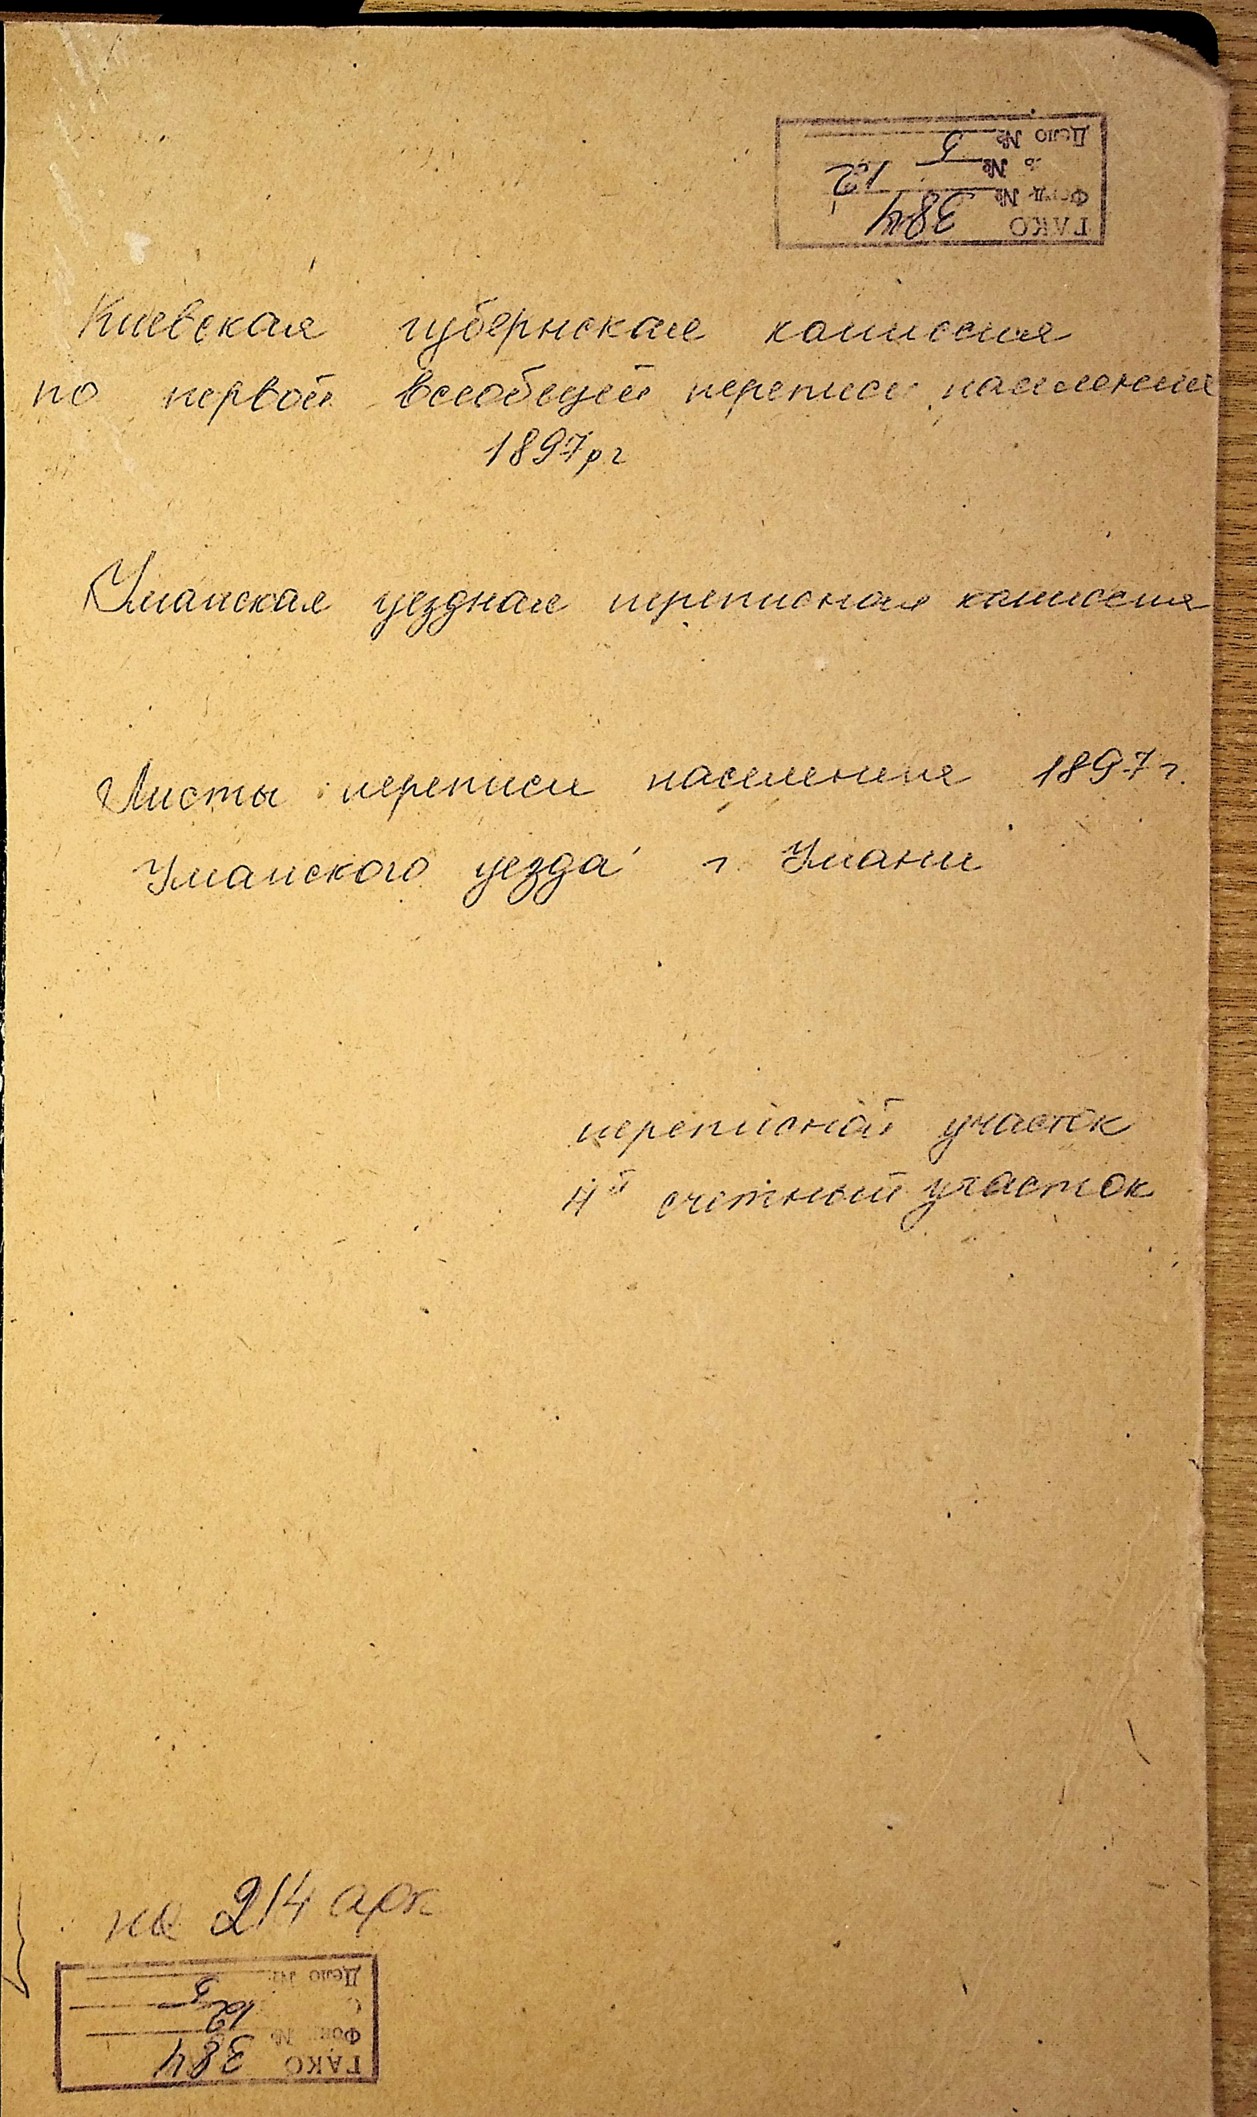 ГАКО
Фонд № 384
№ 12
Дело № 5
Киевская губернская комиссия
по первой всеобщей переписи населения
1897 р г
Уманская уездная переписная комиссия
Листы переписи населения 1897 г.
Уманского уезда г. Умани
переписной участок
4й счетный участок
на 214 арк
ГАКО
Фонд № 384
12
Дело № 5